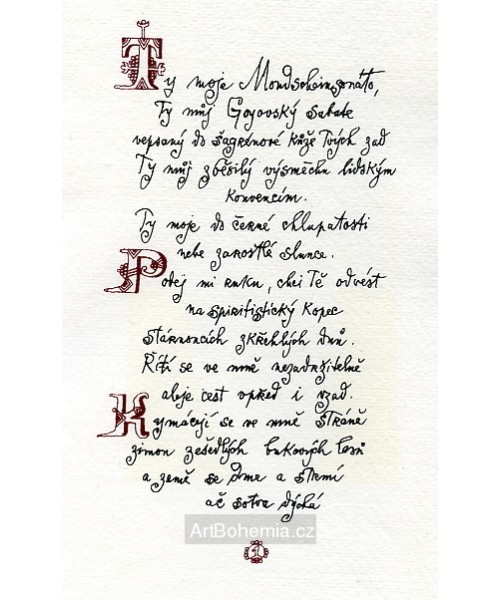 Ty moje Mondscheinsonáto,
Ty můj Goyovský Sabate
vepsaný do šagrénové kůže Tvých zad
Ty můj zběsilý výsměchu lidským
konvencím.
Ty moje do černé chlupatosti
nebe zarostlé slunce.
Podej mi ruku, chci Tě odvést
na spiritistický kopec
stárnoucích zkřehlých dnů.
Řítí se ve mně nezadržitelně
aleje cest vpřed i vzad.
Kymácejí se ve mně stráně
zimou zešedlých bukových lesů
a země se dme a strmí
ač sotva dýchá
ArtBohemia.cz